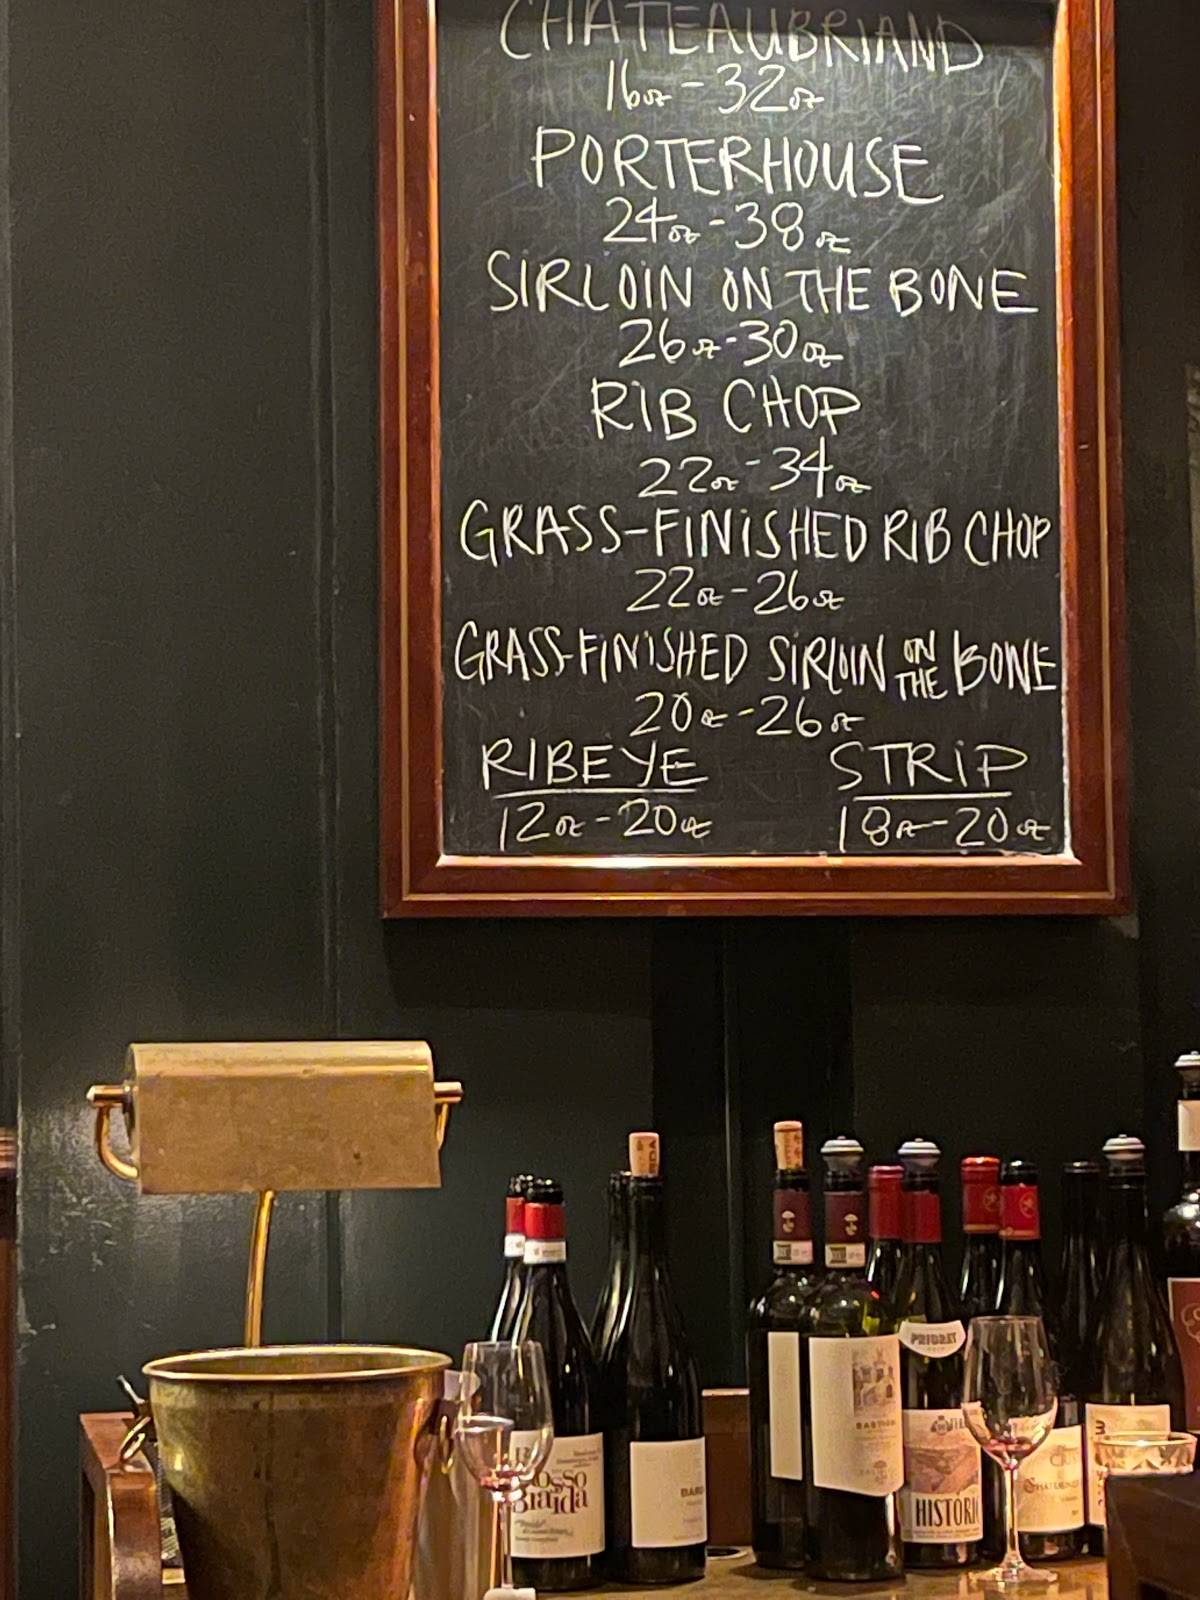 CHATEAUBRIAND
16oz - 32oz
PORTERHOUSE
24oz - 38oz
SIRLOIN ON THE BONE
26oz - 30oz
RIB CHOP
22oz - 34oz
GRASS-FINISHED RIB CHOP
22oz - 26oz
GRASS-FINISHED SIRLOIN ON THE BONE
20oz - 26oz
RIBEYE STRIP
12oz - 20oz 18oz - 20oz
PRIORAT
HISTORIC